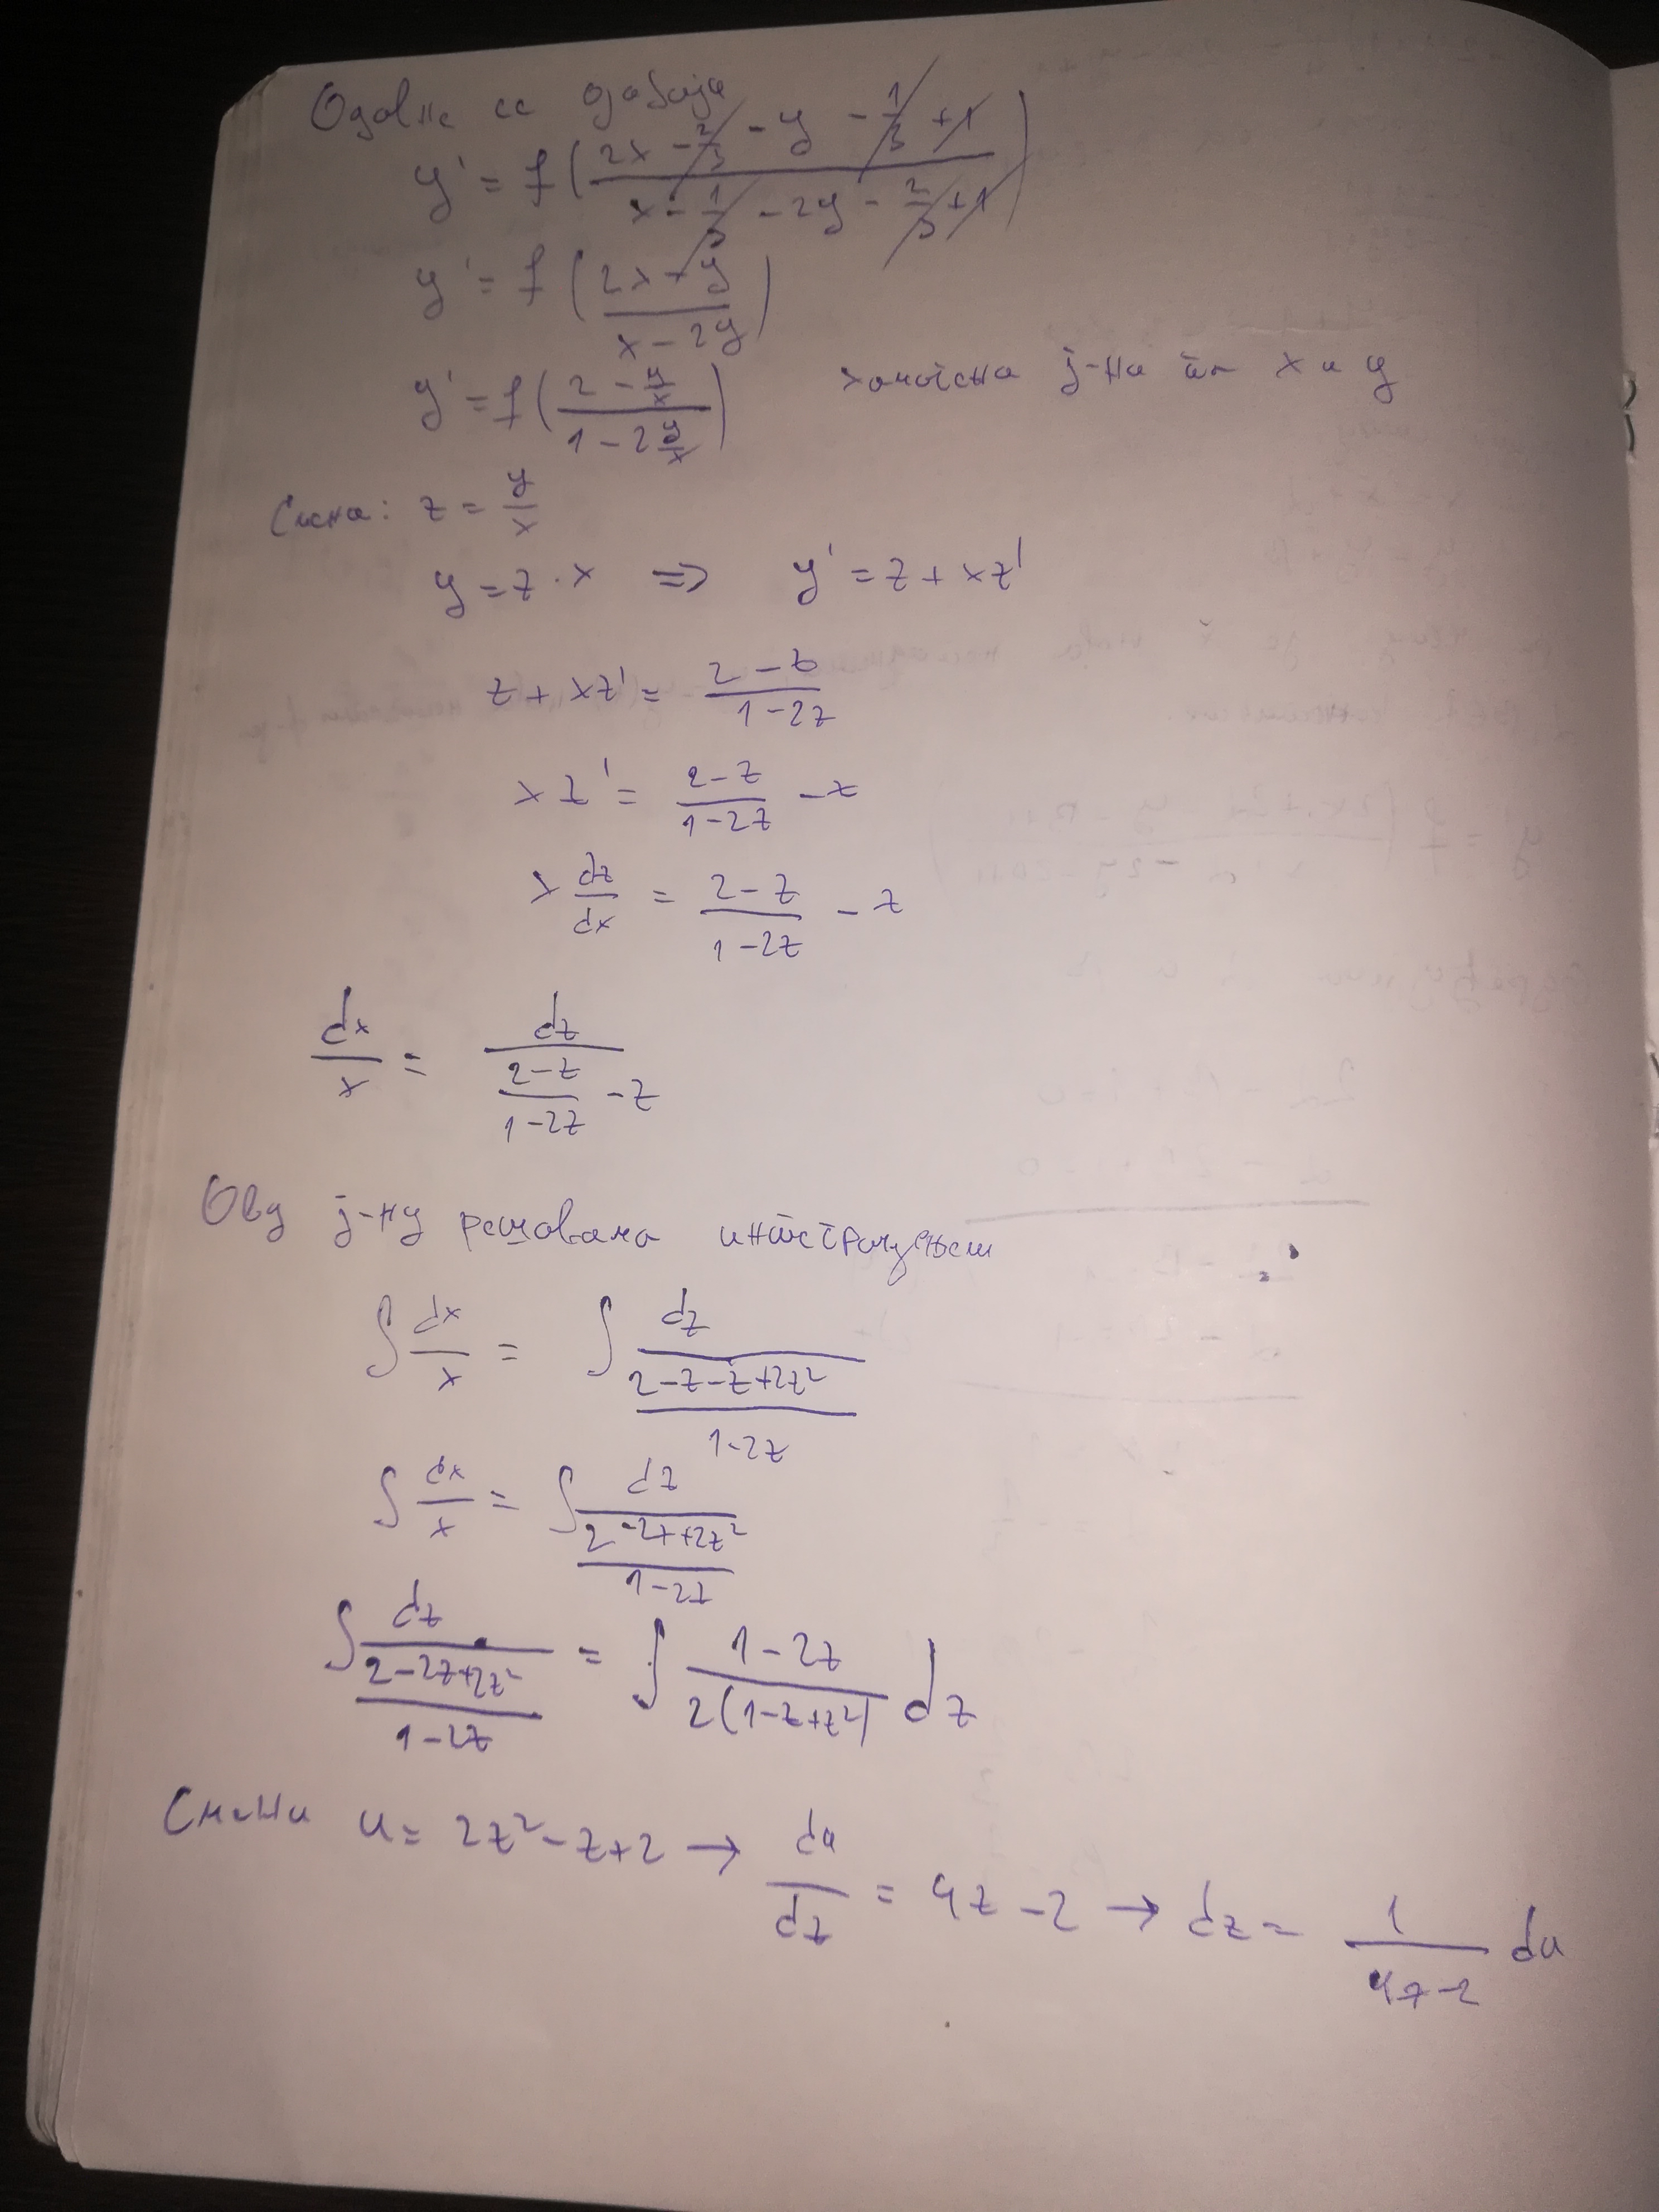 Одавде се одваја
y' = f ( (2x - 2/3 - y - 1/3 + 1) / (x - 1/3 - 2y - 2/3 + 1) )
y' = f ( (2x - y) / (x - 2y) )
y' = f ( (2 - y/x) / (1 - 2 y/x) ) хомогена j-на по x и y
Смена: z = y/x
y = z · x => y' = z + xz'
z + xz' = (2 - z) / (1 - 2z)
xz' = (2 - z) / (1 - 2z) - z
x dz/dx = (2 - z) / (1 - 2z) - z
dx/x = dz / ((2 - z)/(1 - 2z) - z)
Ову j-ну решавамо интеграцијом
∫ dx/x = ∫ dz / ((2 - z - z + 2z²) / (1 - 2z))
∫ dx/x = ∫ dz / ((2 - 2z + 2z²) / (1 - 2z))
∫ dz / ((2 - 2z + 2z²) / (1 - 2z)) = ∫ (1 - 2z) / (2(1 - z + z²)) dz
Смена u = 2z² - z + 2 → du/dz = 4z - 2 → dz = 1/(4z - 2) du